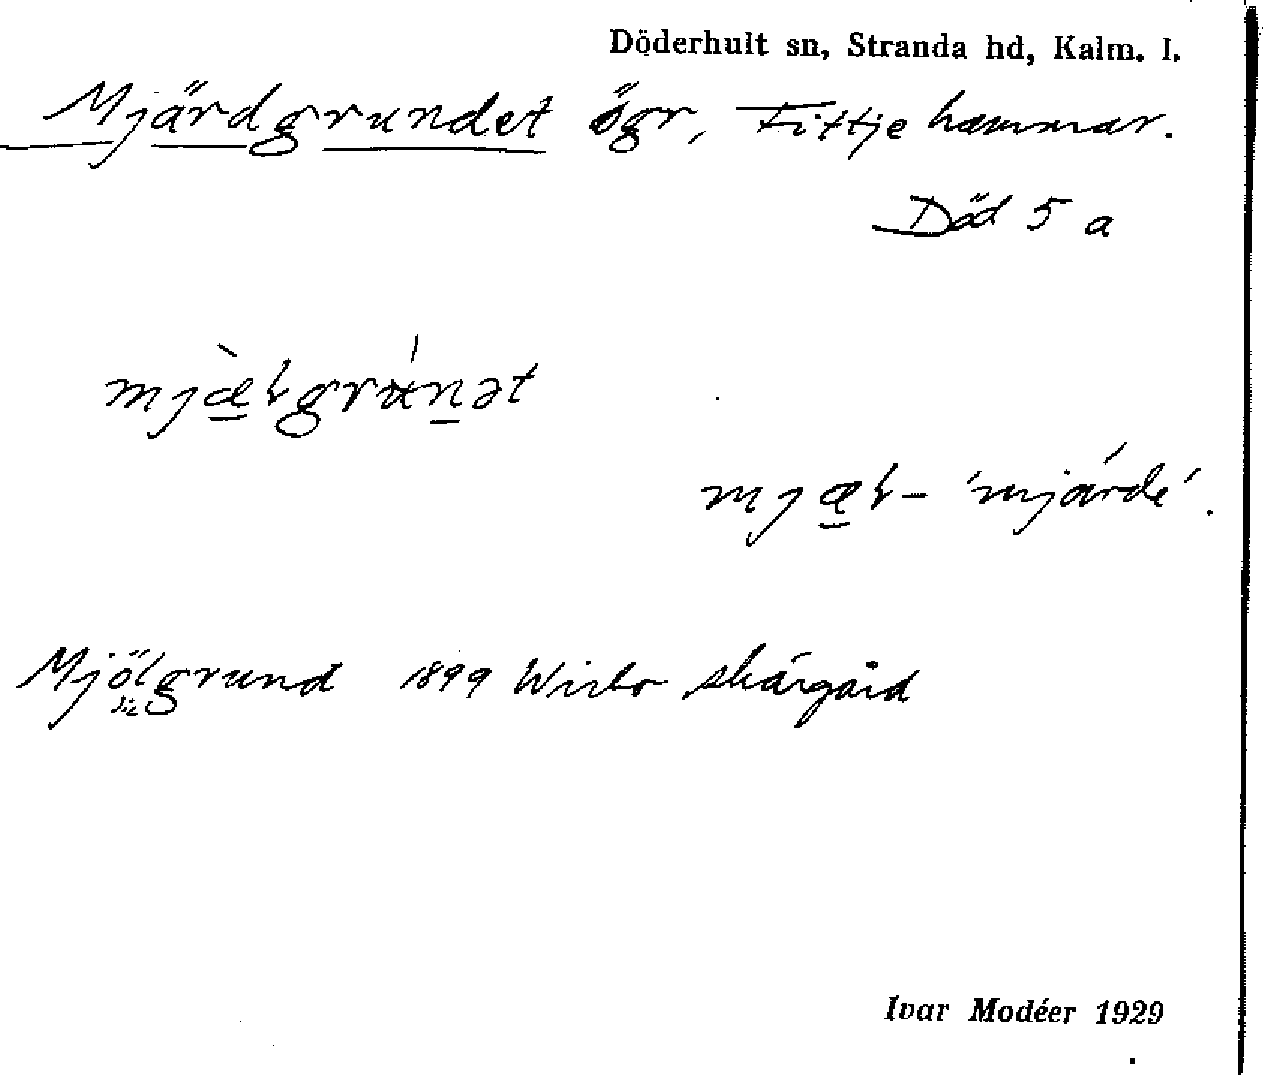 Döderhult sn, Stranda hd, Kalm. l.
Mjärdgrundet ögr, Fittjehammar.
Död 5 a
mjæ̠̀ɽgrún̠ət
mjæ̠ɽ- 'mjärde'.
Mjölgrund 1899 Wirbo skärgård
sic
Ivar Modéer 1929